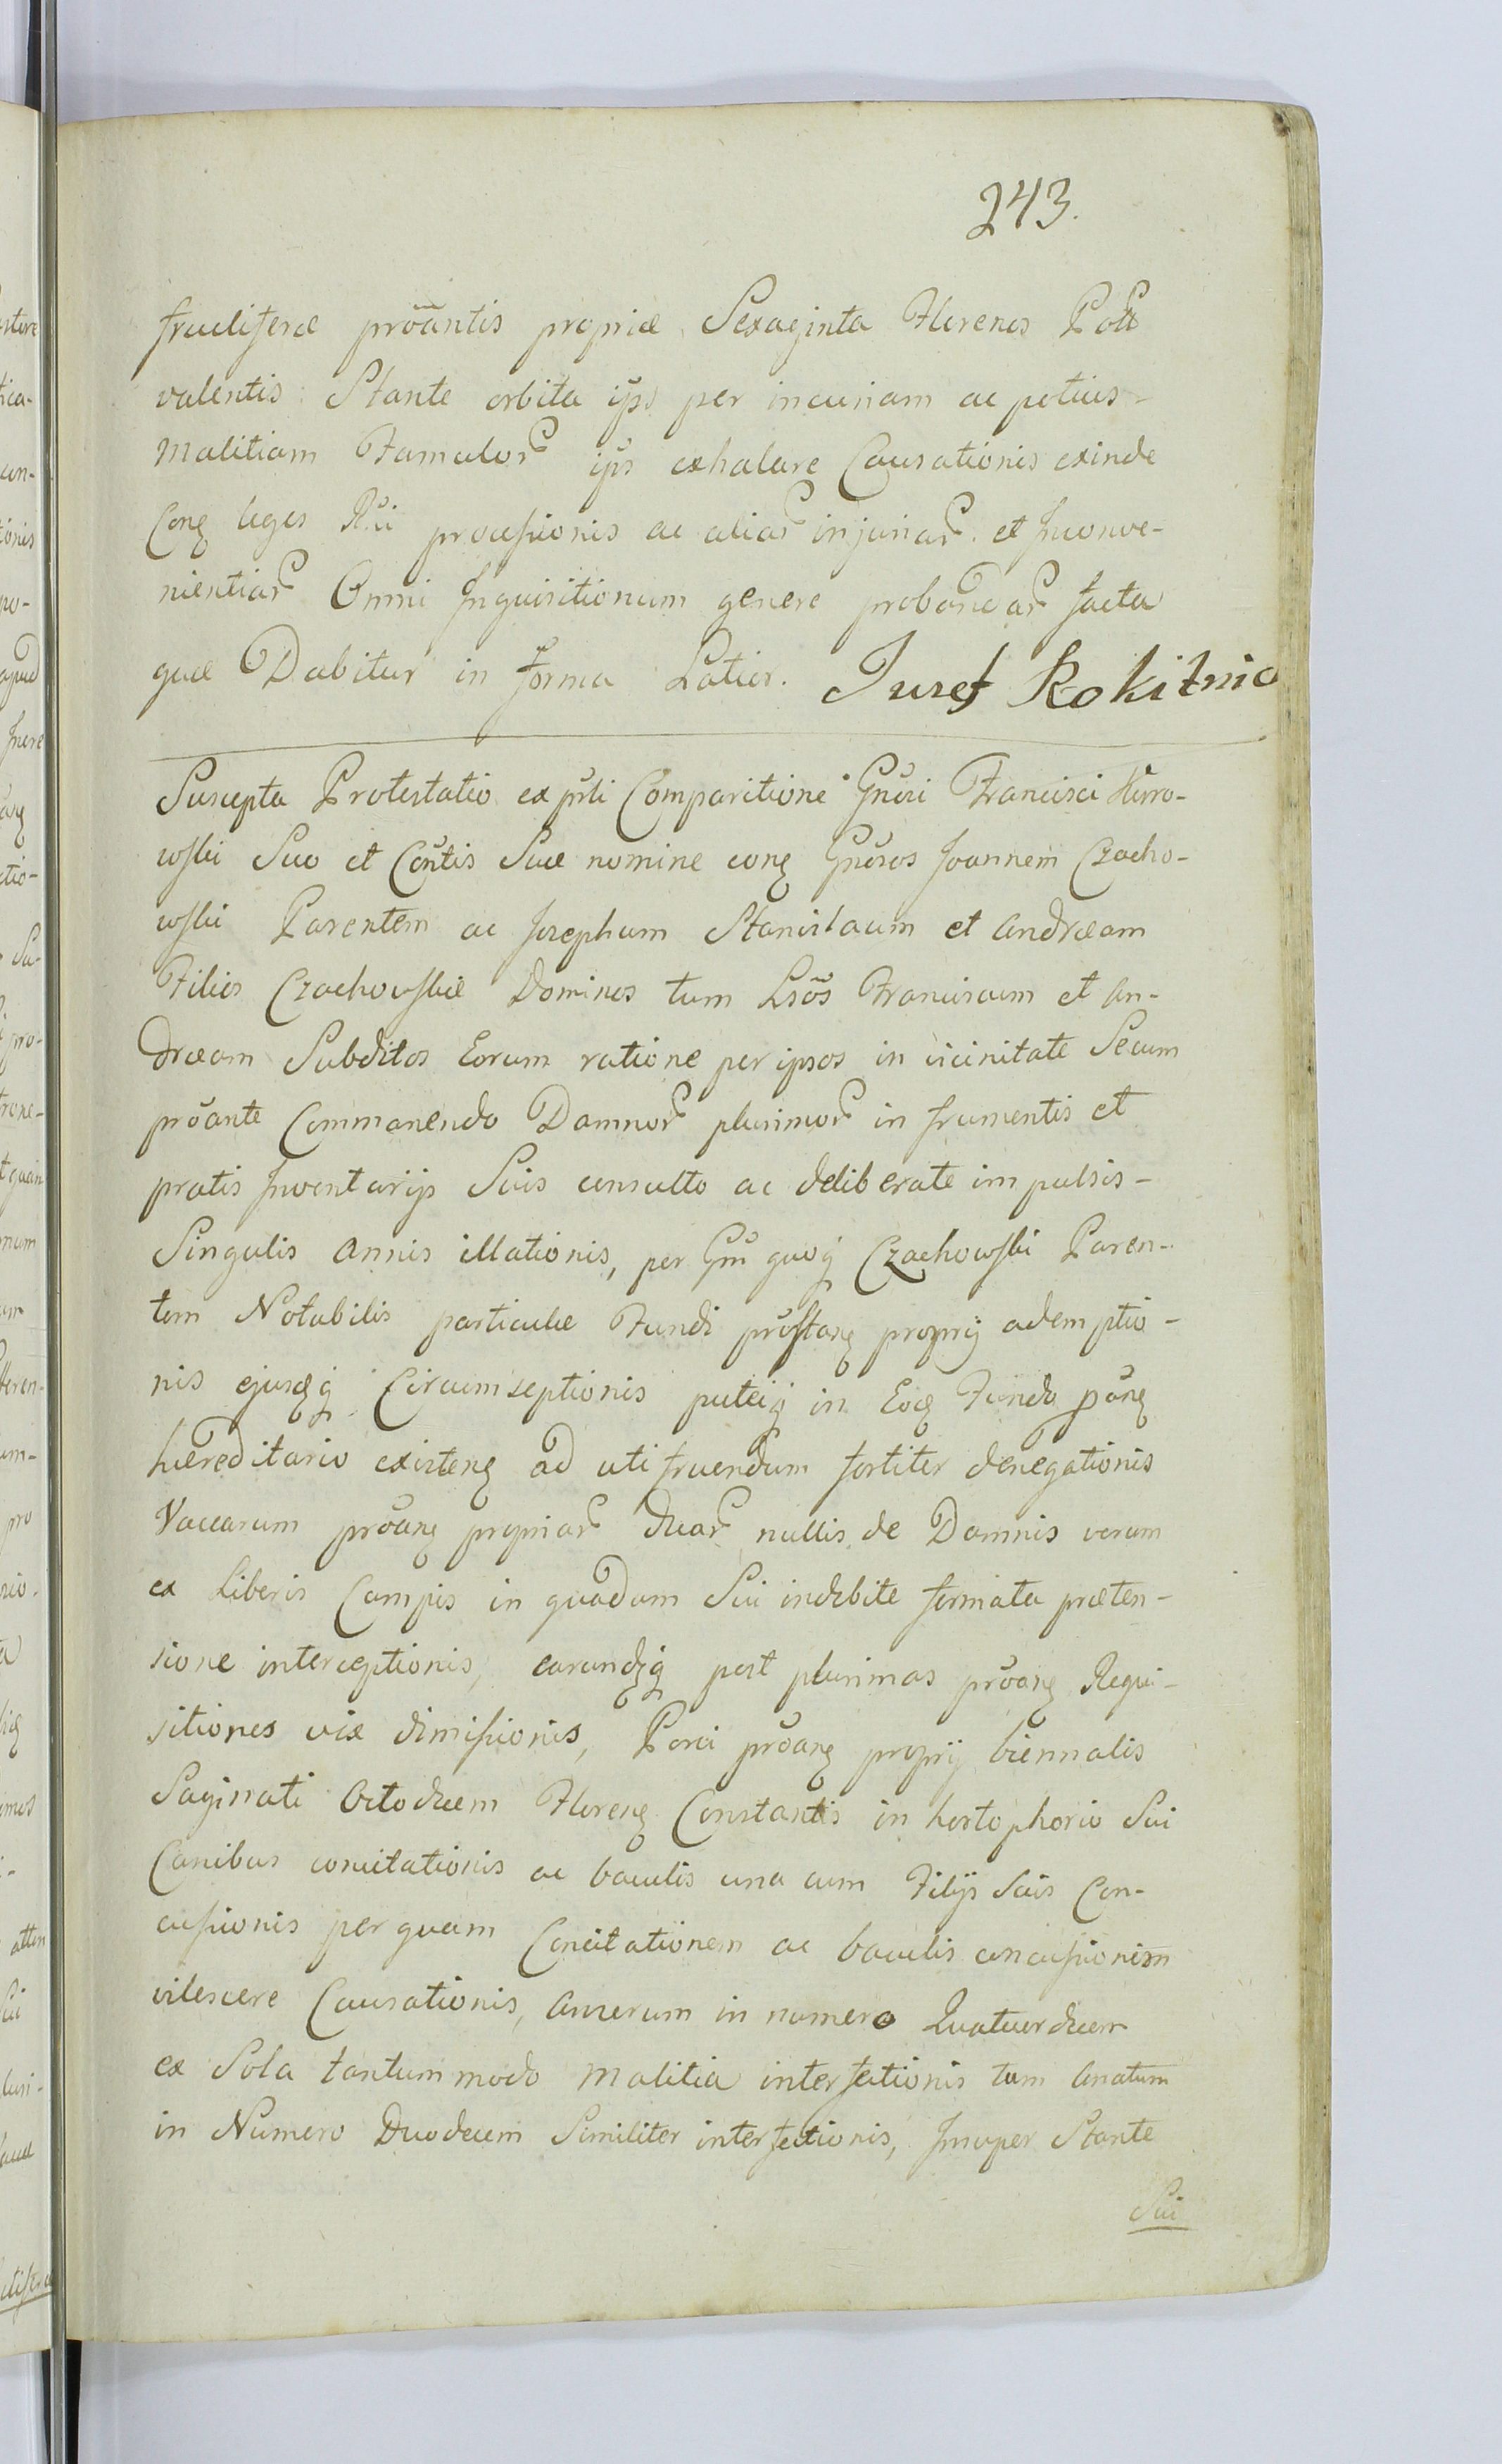 243.
fructiferæ prõantis propriæ Sexaginta Florenos Poll
valentis Stante orbita ips per incuriam ac potius-
Malitiam Famulor ips exhalare Causationis exinde
Conq leges Rni processionis ac aliar injuriar et Inconve-
nientiar Omni Inquisitionum genere probandar facta
quæ Dabitur in forma Latior. Juref Rokitnic
Suscepta Protestatio ex prti Comparitione Gnosi Francisci
wski Suo et Contis Suæ nomine conq Gnosos Joannem Czacho-
wski Parentem ac Josephum Stanislaum et Andræam
Filios Czachowskie Dominos tum Lsos Franciscum et An-
dræam Subditos Eorum ratione per ipsos in vicinitate Secum
prõante Commanendo Damnor plurimor in frumentis et
pratis Inventarijs Suis consulto ac deliberate impulsis-
Singulis Annis illationis, per Gm quoq Czachowski Paren-
tem Notabilis particulæ Fundi prostanq proprij ademptio-
nis ejusqq Circumseptionis puteiq in Eoq Fundo põnq
hæreditario existenq ad uti fruendum fortiter denegationis
Vaccarum prõanq propriar duar nullis de Damnis verum
ex Liberis Campis in quadam Sui indebite formata præten-
sione interceptionis, earundqq post plurimas prõanq Requi-
sitiones vix dimissionis, Porci prõanq proprij biennalis
Saginati Octodecem Florenq Constantis in hortophorio Sui
Canibus concitationis ac baculis una cum Filijs Suis Con-
cussionis per quam Concitationem ac baculis concussionem
vilescere Causationis, Anserum in numero Quatuordecem
ex Sola tantummodo Malitia interfectionis tum Anatum
in Numero Duodecem Similiter interfectionis, Insuper Stante
Sui